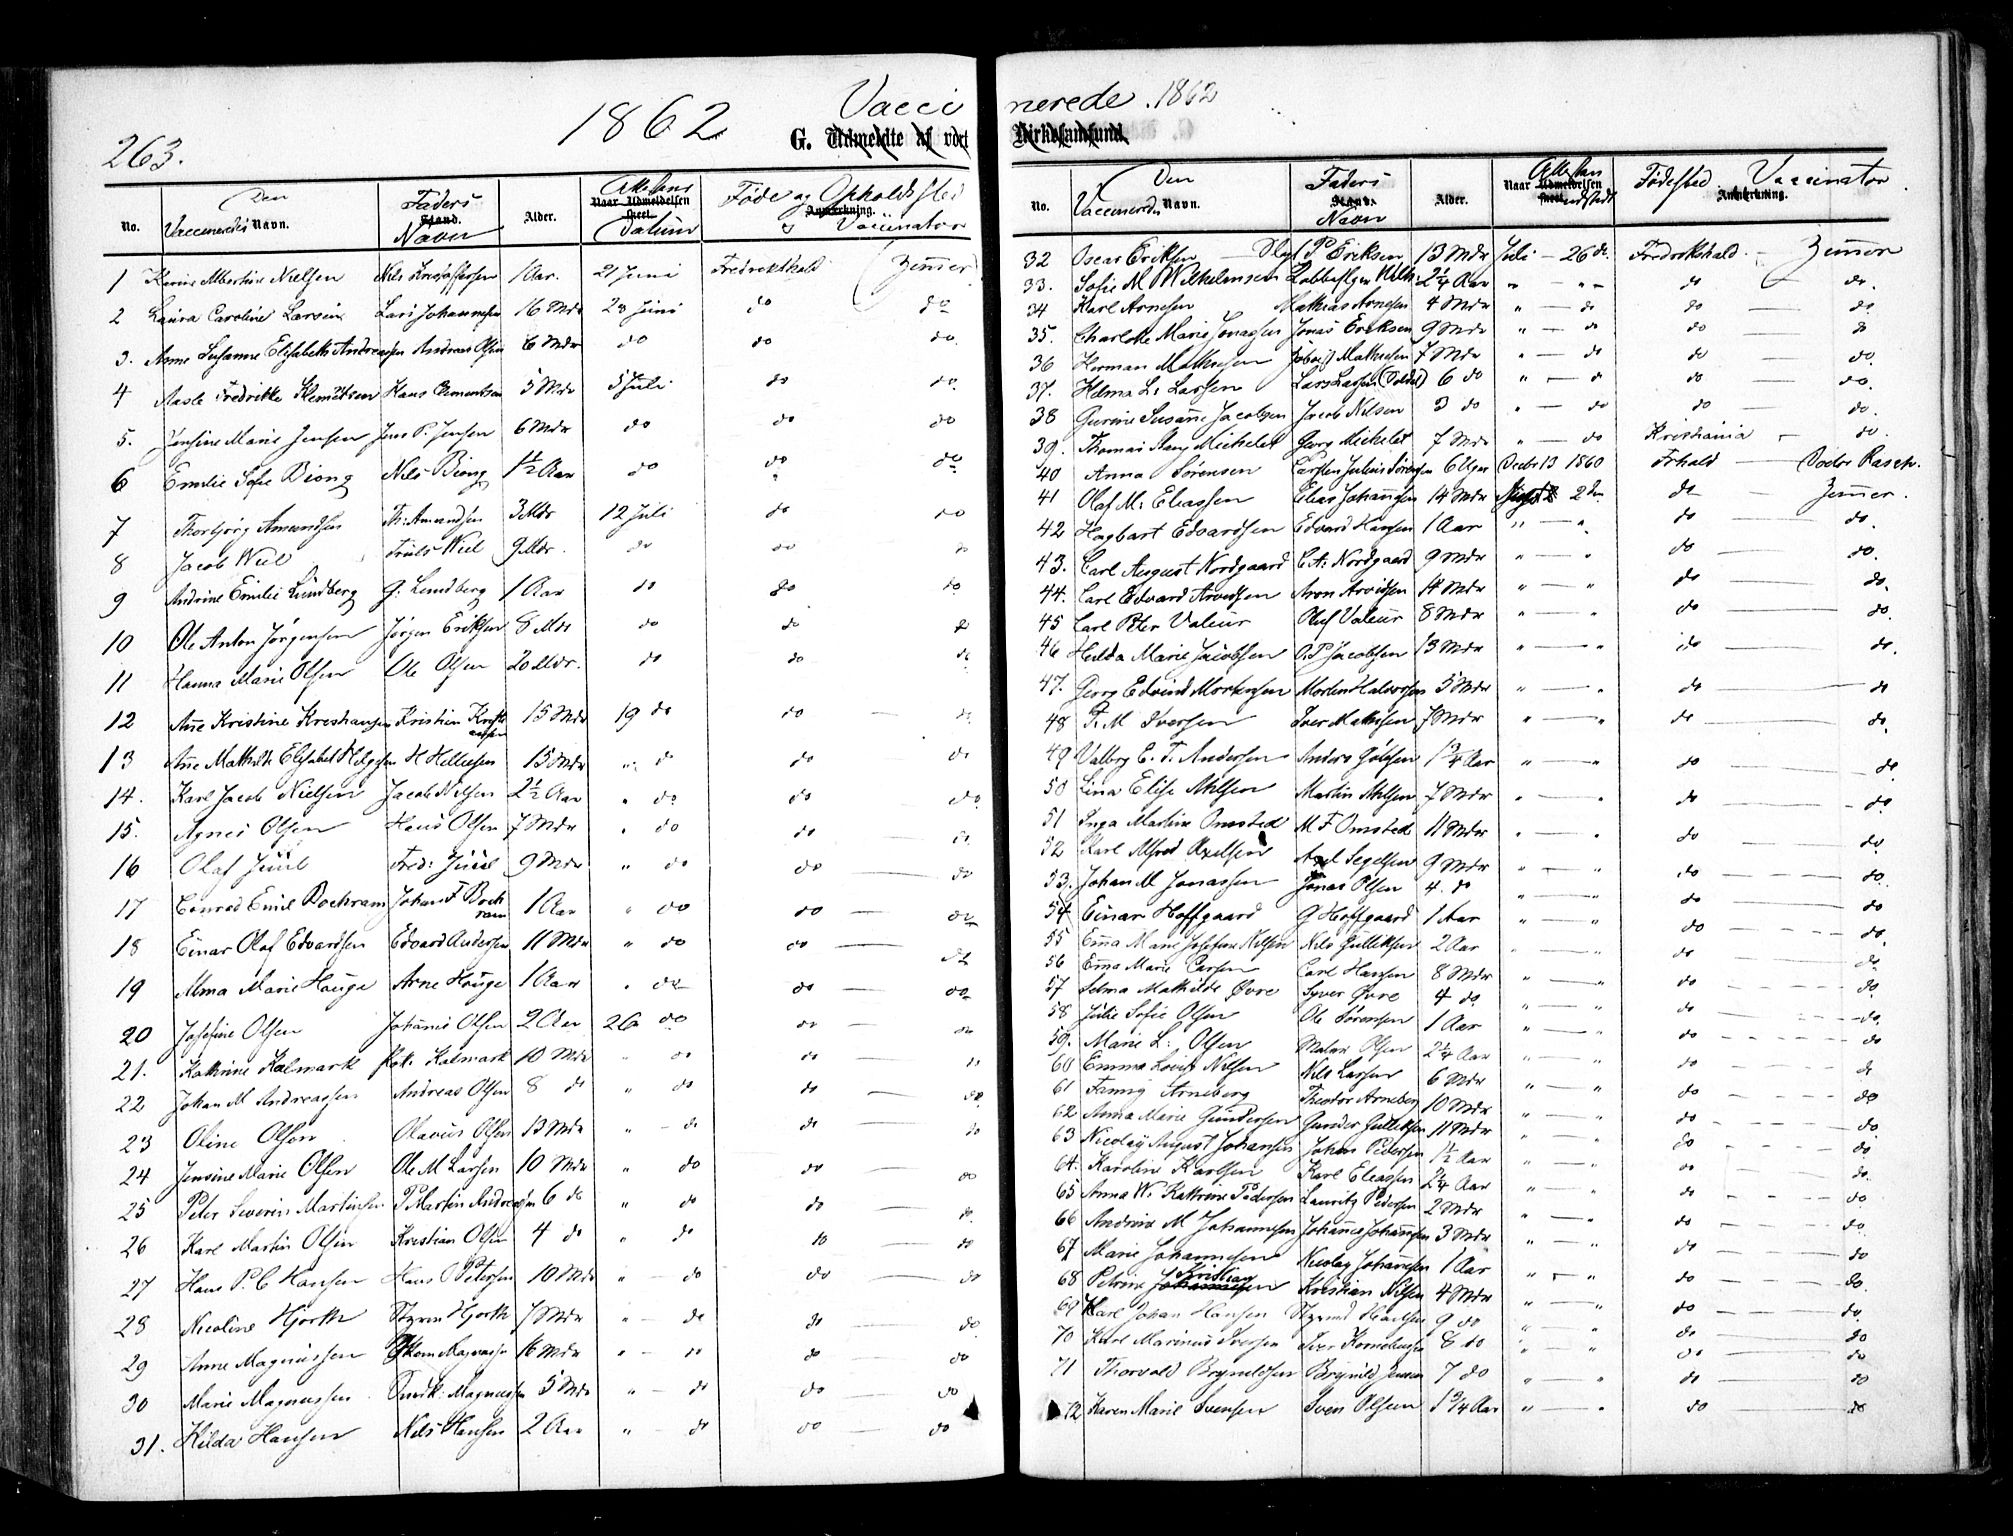 263.
1862
Vacci
G. Udmeldte af vort
No.
Den Vaccineredes Navn.
Faders Stand. Navn
Alder.
Attestens Naar Udmeldelsen skeet. Datum
Føde og Opholdssted Anmærkning. Vaccinator
1 Karine Albertine Nielsen Nils 1 Aar. 21 Juni Fredrikshald Zimmer
2 Laura Caroline Larsen Lars Johannesen 16 Mdr 28 Juni do do
3. Anne Susanne Elisabeth Andreassen Andreas Olsen 6 Mdr do do do.
4 Fredrikke Klemetsen Hans Clementsen 5 Mdr 5 Juli do do.
5. Jensine Marie Jensen Jens P. Jensen 6 Mdr do do do
6 Emilie Sofie Biong Nils Biong 1½ Aar do do do
7 Thorbjørg Amundsen Th: Amundsen 3 Mdr 12 Juli do do
8 Jacob Wiel Truls Wiel 9 Mdr. do do do
9 Andrine Emilie Lundberg G. Lundberg 1 Aar do do do
10 Ole Anton Jørgensen Jørgen Eriksen 8 Mdr do do do
11 Hanna Marie Olsen Ole Olsen 20 Mdr. do do do
12 Ane Kristine Kristiansen Kristian 15 Mdr 19 do do do
13 Ane Mathilde Elisabet H 15 Mdr " do do do
14. Karl Jacob Nielsen Jacob Nilsen 2½ Aar " do do do
15. Agnes Olsen Hans Olsen 7 Mdr " do do do
16 Olaf Juul Fred: Juul 9 Mdr " do do do
17 Conrad Emil Bochram Johan F Bochram 1 Aar " do do do
18 Einar Olaf Edvardsen Edvard Andersen 11 Mdr " do do do
19 Alma Marie Hauge Arne Hauge 1 Aar " do do do
20 Josefine Olsen Johannes Olsen 2 Aar 26 do do do
21. Kathrine Kalmark Joh. Kalmark 10 Mdr " do do do
22 Johan M Andreassen Andreas Olsen 8 do " do do do
23 Oline Olsen Olavus Olsen 13 Mdr " do do do
24 Jensine Marie Olsen Ole M Larsen 10 Mdr " do do do
25 Peter Severin Martinsen P Martin Andreasen 6 do " do do do
26 Karl Martin Olsen Kristian Olsen 4 do " do do do
27 Hans P. C Hansen Hans O Petersen 10 Mdr " do do do
28 Nicoline Hjorth Hjorth 7 Mdr " do do do
29 Anne Magnussen Magnussen 16 Mdr " do do do
30 Marie Magnussen Magnussen 5 Mdr " do do do
31. Hilda Hansen Nils Hansen 2 Aar " do do do
nerede. 1862
Kirkesamfund
No.
Den Vaccineredes Navn.
Faders Stand. Navn
Alder.
Attesten Naar Udmeldelsen skeet. udstedt
Fødested
Vaccinator Anmærkning.
32 Oscar Eriksen P Eriksen 13 Mdr Juli 26 do. Fredrikshald Zimmer
33. Sofie M Wilhelmsen 2¼ Aar " " do do.
34 Karl Arnesen Mathias Arnesen 4 Mdr " do do do.
35. Charlotte Marie Jonassen Jonas Eriksen 9 Mdr " do do do
36 Herman Mathesen Mathesen 7 Mdr " do do do.
37. Helma L: Larsen Lars Larsen 6 do " do do do.
38 Gurine Susanne Jacobsen Jacob Nilsen 3 do " do do do.
39. Thomas Michelet Georg Michelet 7 Mdr " do Kristiania do.
40 Anna Sørensen Carsten Julius Sørensen 6 Uger Decbr 13 1860 Frhald Doctor Rasch.
41 Olaf M: Eliassen Elias Johannesen 14 Mdr 2 do Zimmer.
42 Hagbart Edvardsen Edvard Hansen 1 Aar " " do do.
43. Carl August Nordgaard C A: Nordgaard 9 Mdr " " do do.
44. Carl Edvard Arvedsen Aron Arvidsen 14 Mdr " " do do.
45 Carl Peter Valeur Oluf Valeur 8 Mdr " " do do.
46 Hulda Marie Jacobsen O. P Jacobsen 13 Mdr " " do do.
47. Georg Edvind Mortensen Morten Halvorsen 5 Mdr " " do do
48 M Iversen Iver Mathesen 7 Mdr " " do do.
49 Valborg E. F. Andersen Anders 1¾ Aar " " do do
50 Lina Elise Martin 7 Mdr " " do do.
51 Inga Martine Omsted M F Omsted 11 Mdr " " do do.
52 Karl Alfred Axelsen Axel Segelsen 9 Mdr " " do do.
53. Johan M Jonassen Jonas Olsen 4 do " " do do.
54 Einar Hoffgaard G Hoffgaard 1 Aar " " do do
55 Emma Marie Josefine Nilsen Nils Gulliksen 2 Aar " " do do.
56 Emma Marie Carsen Carl Hansen 8 Mdr " " do do
57 Selma Mathilde Øvre Syver Øvre 4 do " " do do.
58 Julie Sofie Olsen Ole Sørensen 1 Aar " " do do.
59. Marie L: Olsen Olsen 2¼ Aar " " do do
60 Emma Louise Nilsen Nils Larsen 6 Mdr " " do do
61 Fanny Arneberg Theodor Arneberg 10 Mdr " " do do
62 Anna Marie Gundersen Gunder Gulliksen 11 Mdr " " do do
63 Nicolay August Johansen Johan Pedersen 1½ Aar " " do do
64. Karoline Karlsen Karl Eleassen 2¼ Aar " " do do.
65 Anna W. Kathrine Pedersen Lauritz Pedersen 2 Mdr " " do do
66 Andrine M Johannesen Johannes Johannesen 3 Mdr " " do do
67 Marie Johannesen Nicolay Johannesen 1 Aar " " do do
68 Petrine Johannesen Kristian Kristian Nilsen 4 Mdr " " do do.
69 Karl Johan Hansen 9 do " " do do.
70 Karl Marinus Iversen Iver Korneliussen 8 do " " do do
71 Thorvald Brynildsen Brynild Jensen 7 do " " do do
72 Karen Marie Svensen Sven Olsen 1¾ Aar " " do do